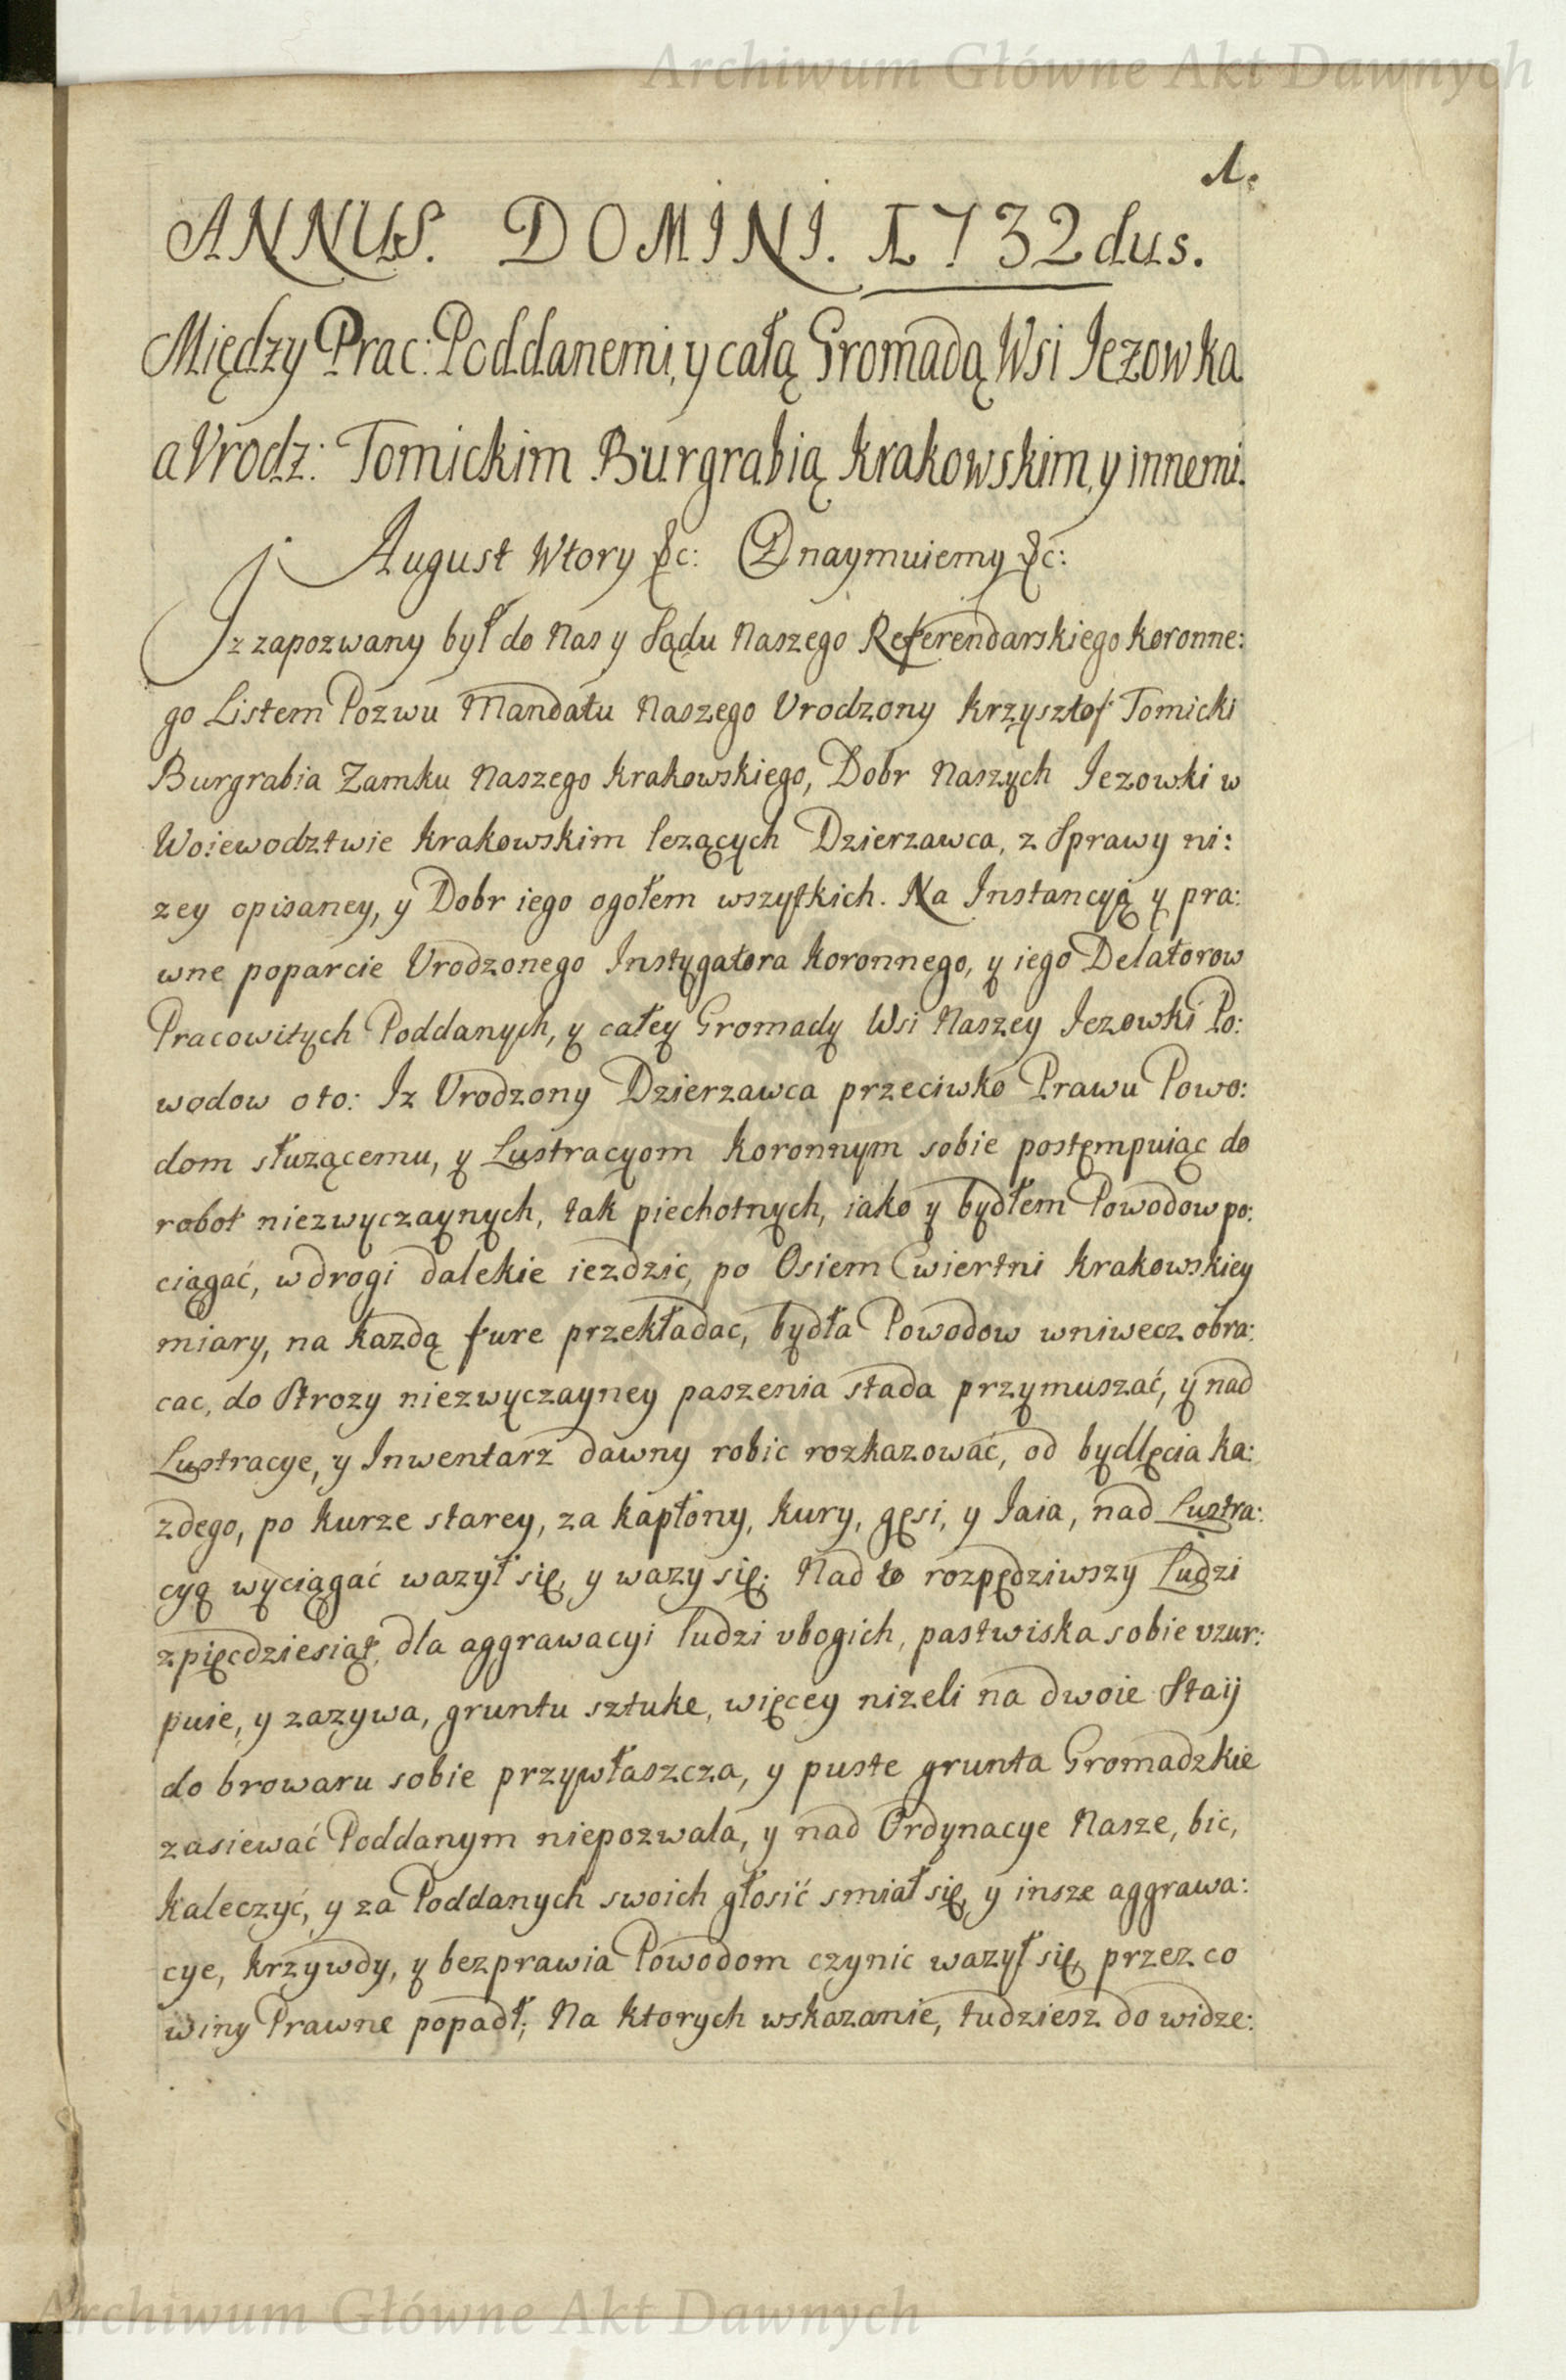 Archiwum Główne Akt Dawnych
1.
ANNUS. DOMINI. 1732dus.
Między Prac: Poddanemi, y całą Gromadą Wsi Jezowka
a Vrodz: Tomickim Burgrabią Krakowskim, y innemi.
August Wtory &c: Oznaymuiemy &c:
Iz zapozwany był do Nas y Sądu Naszego Referendarskiego Koronne:
go Listem Pozwu Mandatu Naszego Vrodzony Krzysztof Tomicki
Burgrabia Zamku Naszego Krakowskiego, Dobr Naszych Jezowki w
Woiewodztwie Krakowskim lezących Dzierzawca, z Sprawy ni:
zey opisaney, y Dobr iego ogołem wszytkich. Na Instancyą y pra:
wne poparcie Vrodzonego Instygatora Koronnego, y iego Delatorow
Pracowitych Poddanych, y całey Gromady Wsi Naszey Jezowki Po:
wodow oto: Iz Vrodzony Dzierzawca przeciwko Prawu Powo:
dom słuzącemu, y Lustracyom Koronnym sobie postempuiąc do
robot niezwyczaynych, tak piechotnych, iako y bydłem Powodow po:
ciągać, w drogi dalekie iezdzic, po Osiem Cwiertni Krakowskiey
miary, na kazdą fure przekładac, bydła Powodow wniwecz obra:
cac, do Strozy niezwyczayney paszenia stada przymuszać, y nad
Lustracye, y Inwentarz dawny robic rozkazować, od bydlęcia ka:
zdego, po kurze starey, za kapłony, kury, gęsi, y Iaia, nad Lustra:
cyą wyciągać wazył się, y wazy się; Nad to rozpędziwszy Ludzi
z pięcdziesiąt, dla aggrawacyi ludzi vbogich, pastwiska sobie vzur:
puie, y zazywa, gruntu sztuke, więcey nizeli na dwoie Staij
do browaru sobie przywłaszcza, y puste grunta Gromadzkie
zasiewać Poddanym niepozwala, y nad Ordynacye Nasze, bic,
kaleczyć, y za Poddanych swoich głosić smiał się, y insze aggrawa:
cye, krzywdy, y bezprawia Powodom czynic wazył się, przez co
winy Prawne popadł; Na ktorych wskazanie, tudziesz do widze:
Archiwum Główne Akt Dawnych